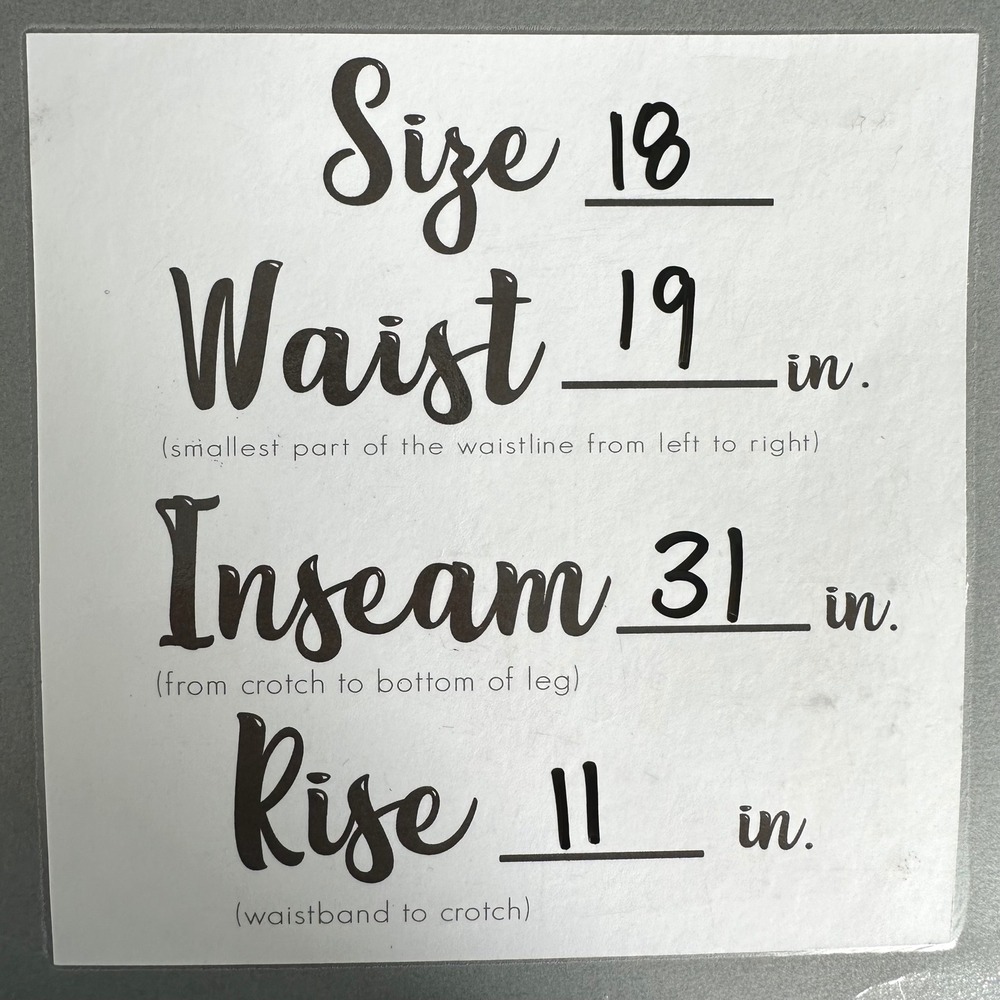 Size 18
Waist 19 in.
(smallest part of the waistline from left to right)
Inseam 31 in.
(from crotch to bottom of leg)
Rise 11 in.
(waistband to crotch)